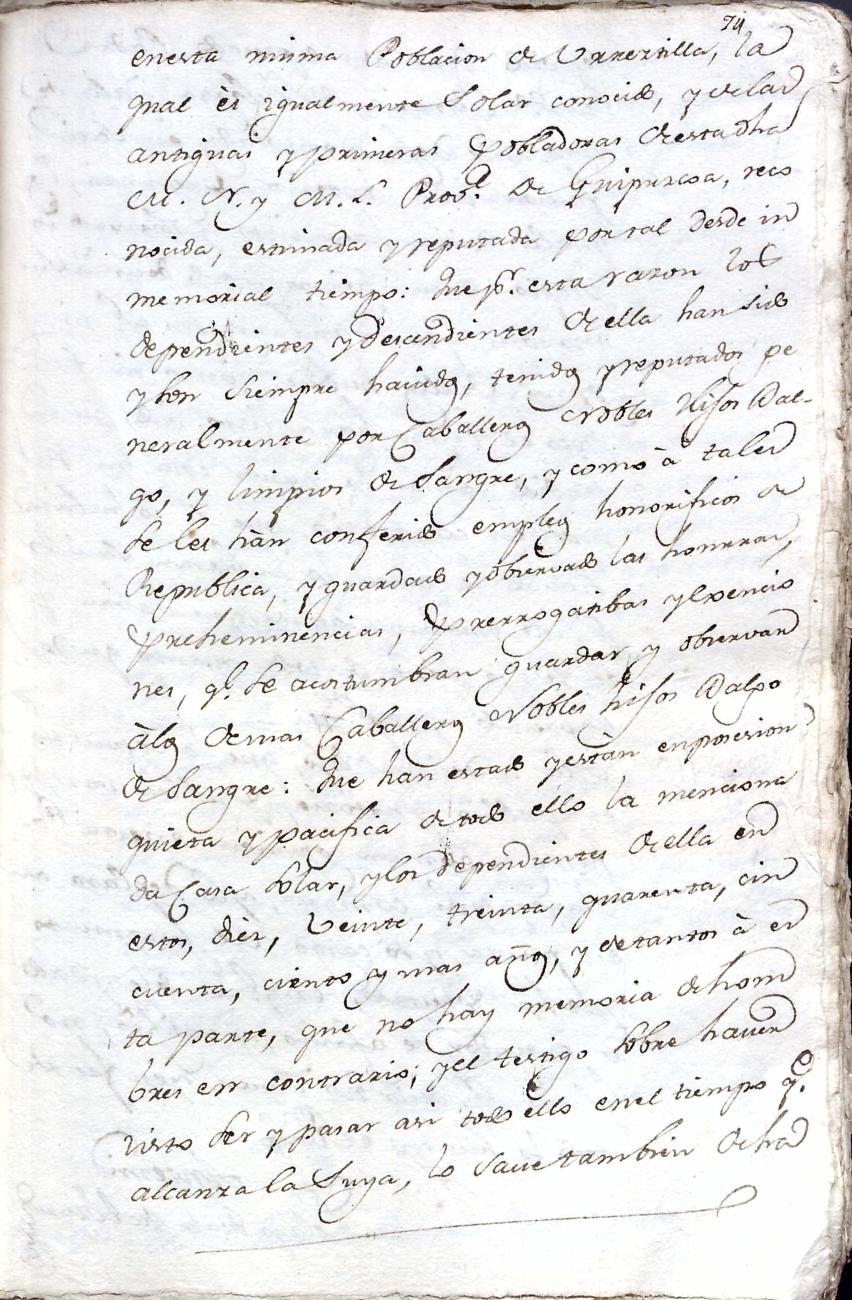 74
en esta misma Poblacion de Urrestilla, la
qual ès igualmente Solar conocido, y de las
antiguas y primeras Pobladoras de esta dha
M. N. y M. L. Prov.ª de Guipuzcoa, reco
nocida, estimada y reputada por tal desde in
memorial tiempo: Que p.r esta razon los
dependientes y descendientes de ella han sido
y son siempre havidos, tenidos y reputados ge
neralmente por Caballeros Nobles Hijos Dal-
go, y limpios de Sangre, y como à tales
se les hàn conferido empleos honorificos de
Republica, y guardado y observado las honrras,
preheminencias, Prerrogatibas y Exencio
nes, q.e se acostumbran guardar y observan
à los demas Caballeros Nobles hijos Dalgo
de Sangre: Que han estado y estàn en posesion
quieta y pacifica de todo ello la menciona
da Casa Solar, y los dependientes de ella en
estos, diez, Veinte, treinta, quarenta, cin
cuenta, ciento y mas años, y de tantos à es
ta parte, que no hay memoria de hom
bres en contrario; y el testigo sobre haver
visto ser y pasar asi todo ello en el tiempo q.e
alcanza la Suya, lo save tambien de ha